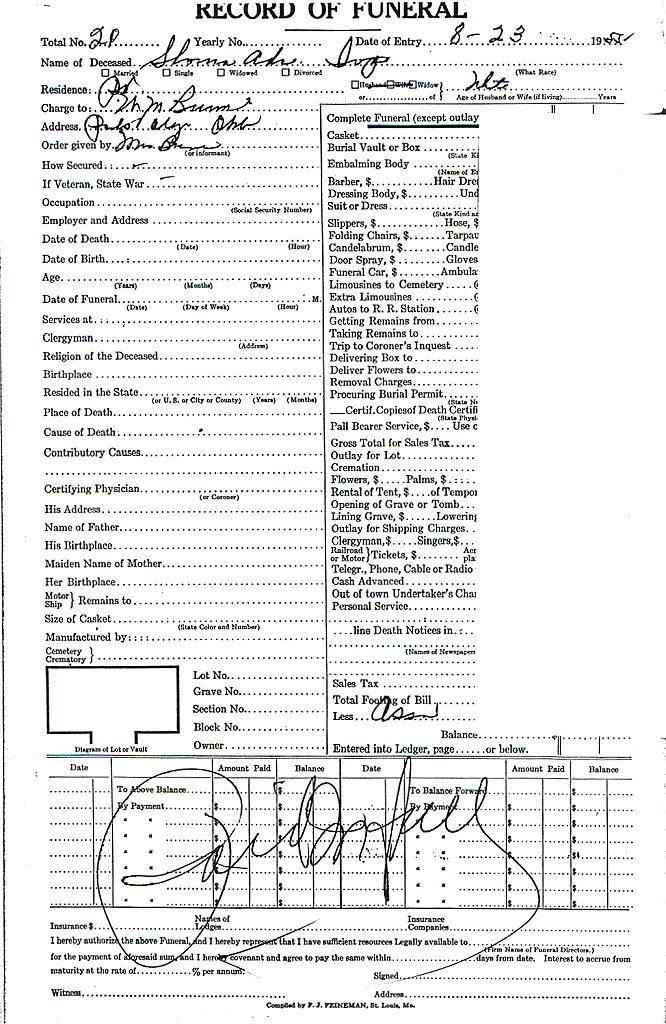 RECORD OF FUNERAL
Total No. 28 Yearly No. Date of Entry 8-23 19
Name of Deceased
Married Single Widowed Divorced (What Race)
Residence: Husband Wife Widow
or of Age of Husband or Wife (if living) Years
Charge to: Burns
Address.
Order given by. Mrs
(or informant)
How Secured:
If Veteran, State War
Occupation
(Social Security Number)
Employer and Address
Date of Death
(Date) (Hour)
Date of Birth
Age
(Years) (Months) (Days)
Date of Funeral M.
(Date) (Day of Week) (Hour)
Services at
Clergyman
(Address)
Religion of the Deceased
Birthplace
Resided in the State
(or U. S. or City or County) (Years) (Months)
Place of Death
Cause of Death
Contributory Causes
Certifying Physician
(or Coroner)
His Address
Name of Father
His Birthplace
Maiden Name of Mother
Her Birthplace
Motor Ship } Remains to
Size of Casket
(State Color and Number)
Manufactured by
Cemetery
Crematory }
Lot No.
Grave No.
Section No.
Block No.
Owner
Diagram of Lot or Vault
Complete Funeral (except outlay
Casket
Burial Vault or Box
(State Ki
Embalming Body
(Name of E
Barber, $ Hair Dre
Dressing Body, $ Und
Suit or Dress
(State Kind an
Slippers, $ Hose, $
Folding Chairs, $ Tarpau
Candelabrum, $ Candle
Door Spray, $ Gloves
Funeral Car, $ Ambula
Limousines to Cemetery (
Extra Limousines (
Autos to R. R. Station (
Getting Remains from
Taking Remains to
Trip to Coroner's Inquest
Delivering Box to
Deliver Flowers to
Removal Charges
Procuring Burial Permit
(State N
Certif. Copies of Death Certifi
(State Physi
Pall Bearer Service, $ Use o
Gross Total for Sales Tax
Outlay for Lot
Cremation
Flowers, $ Palms, $
Rental of Tent, $ of Tempo
Opening of Grave or Tomb
Lining Grave, $ Lowering
Outlay for Shipping Charges
Clergyman, $ Singers, $
Railroad or Motor } Tickets, $ Aer pla
Telegr., Phone, Cable or Radio
Cash Advanced
Out of town Undertaker's Cha
Personal Service
line Death Notices in
(Names of Newspaper
Sales Tax
Total Footing of Bill
Less
Balance
Entered into Ledger, page or below.
Date Amount Paid Balance Date Amount Paid Balance
To Above Balance $ To Balance Forward $
By Payment $ $ By Payment $ $
" " $ $ " " $ $
" " $ $ " " $ $
" " $ $ " " $ $
" " $ $ " " $ $
" " $ $ " " $ $
Insurance $ Names of Lodges Insurance Companies
I hereby authorize the above Funeral, and I hereby represent that I have sufficient resources Legally available to
(Firm Name of Funeral Directors.)
for the payment of aforesaid sum, and I hereby covenant and agree to pay the same within days from date. Interest to accrue from
maturity at the rate of % per annum.
Signed
Witness Address
Compiled by F. J. FEINEMAN, St. Louis, Mo.